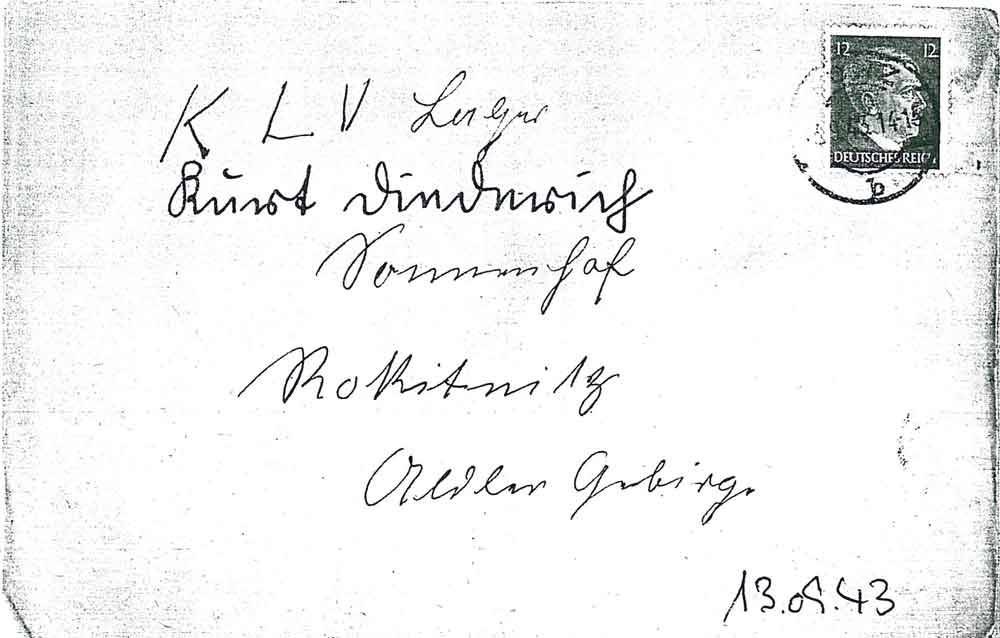 12 12
DEUTSCHES REICH
b
K L V Lager
Kurt Diederich
Sonnenhof
Rokitnitz
Adler Gebirge
13.09.43